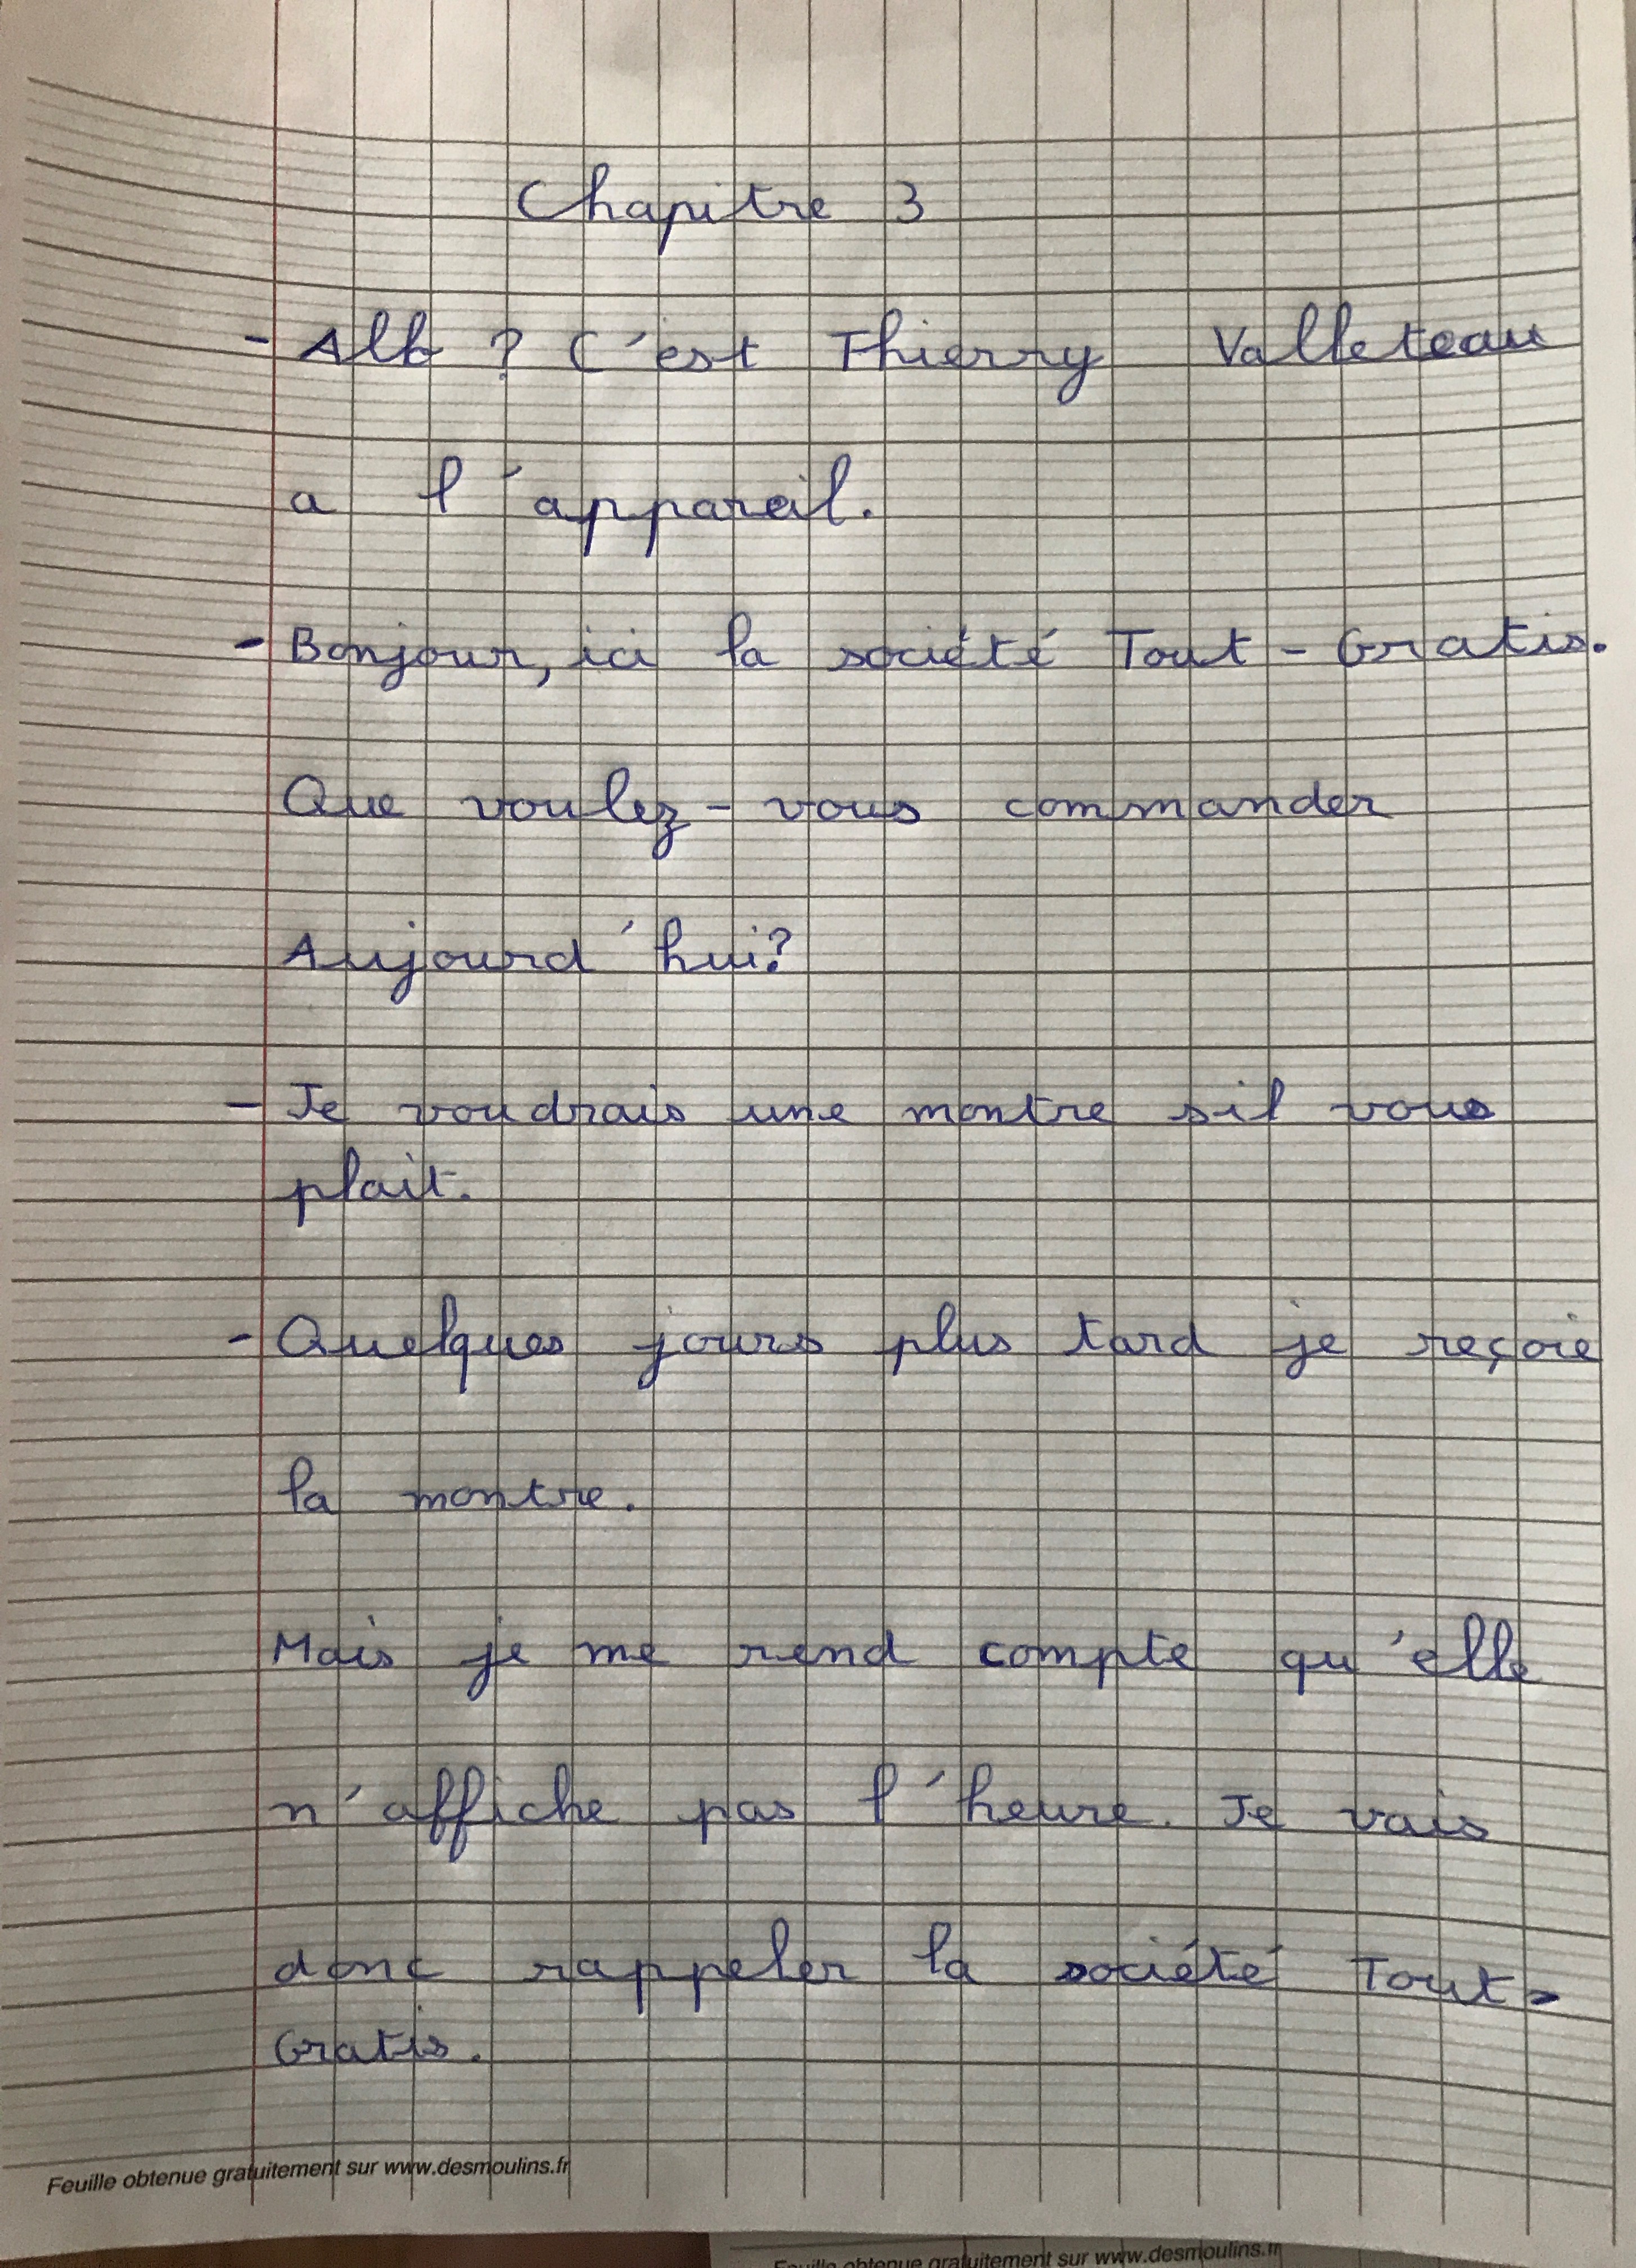 Chapitre 3
- Allo ? C'est Thierry Valleteau
a l'appareil.
- Bonjour, ici la société Tout - Gratis.
Que voulez - vous commander
Aujourd'hui?
- Je voudrais une montre sil vous
plait.
- Quelques jours plus tard je reçoie
la montre.
Mais je me rend compte qu'elle
n'affiche pas l'heure. Je vais
donc rappeler la société Tout-
Gratis.
Feuille obtenue gratuitement sur www.desmoulins.fr
Feuille obtenue gratuitement sur www.desmoulins.fr